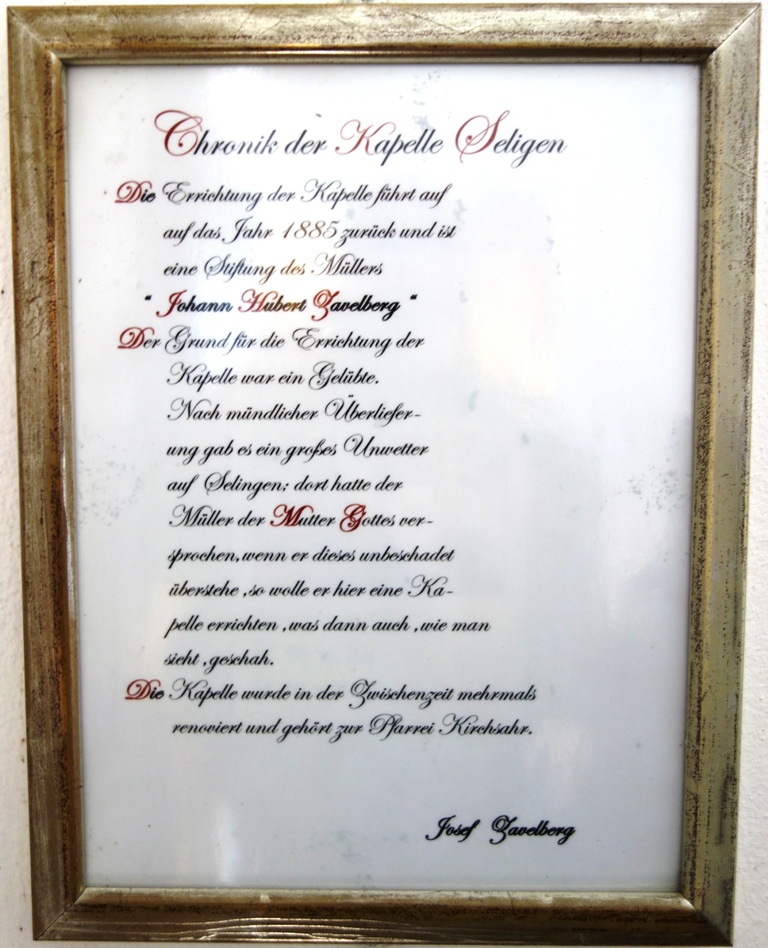 Chronik der Kapelle Seligen
Die Errichtung der Kapelle führt auf
auf das Jahr 1885 zurück und ist
eine Stiftung des Müllers
" Johann Hubert Zavelberg "
Der Grund für die Errichtung der
Kapelle war ein Gelübte.
Nach mündlicher Überliefer-
ung gab es ein großes Unwetter
auf Selingen; dort hatte der
Müller der Mutter Gottes ver-
sprochen,wenn er dieses unbeschadet
überstehe ,so wolle er hier eine Ka-
pelle errichten ,was dann auch ,wie man
sieht ,geschah.
Die Kapelle wurde in der Zwischenzeit mehrmals
renoviert und gehört zur Pfarrei Kirchsahr.
Josef Zavelberg